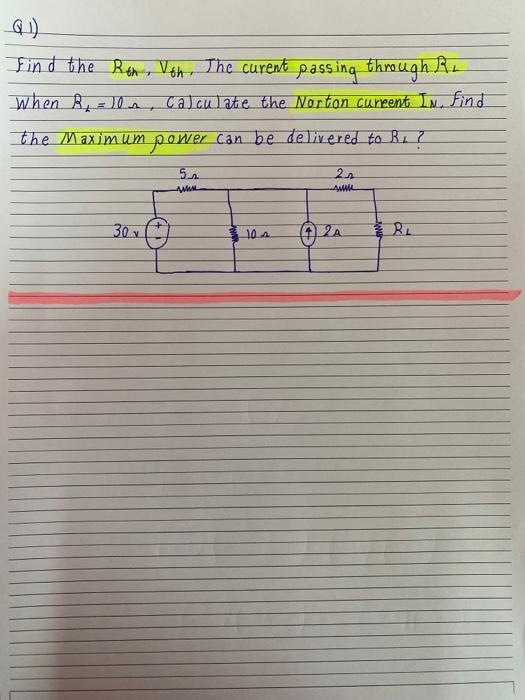 Q1)
Find the Rth, Vth. The curent passing through RL
When RL = 10 Ω, Calculate the Norton cureent IN. Find
the Maximum power can be delivered to RL?
5Ω 2Ω
30 v + - 10 Ω 2A RL